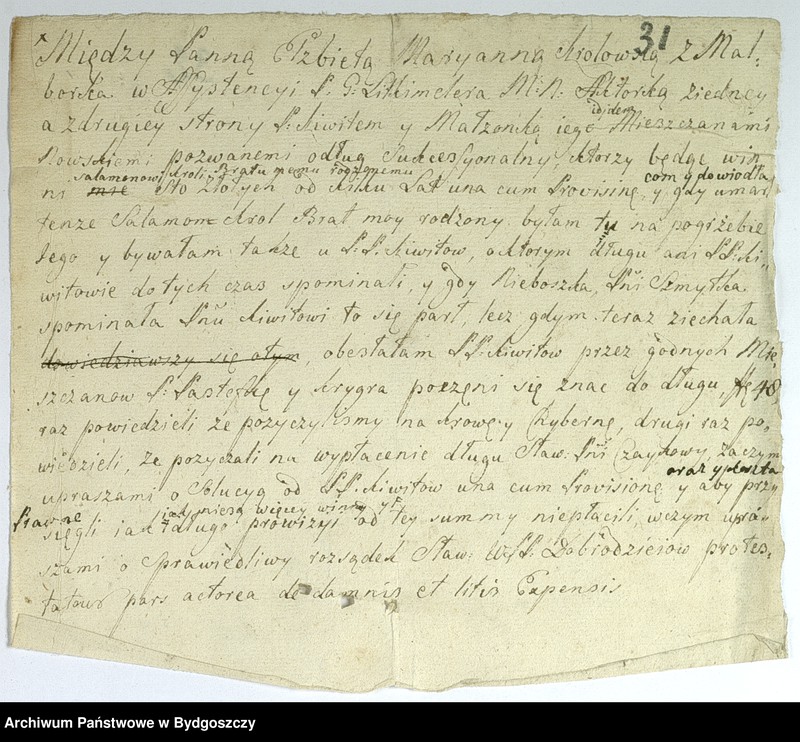 31
Między Panną Elzbietą Maryanną Krolowską z Mal-
borka w Assystencyi P. G. Litkimelera M: N: Aktorką ziedney
a zdrugiey strony P: Kiwitem y Małzonką iego Mieszczanami
pozwanemi odług Sukcessyonalny, ktorzy będąc win-
salamonowi Kroli Bratu memu rodzonemu com y dowiodła
ni mie Sto Złotych od Kilku Lat una cum Provisinę, y gdy umar
tenze Salamon Krol Brat moy rodzony byłam tu na pogrzebie
Jego y bywałam także u P.P. Kiwitow, o ktorym długu ani P.P. Ki-
witowie do tych czas spominali, y gdy Nieboszka, Pni Szmytka
spominała Pnu Kiwitowi to się parł, lecz gdym teraz ziechała
dowiedziawszy się otym, obesłałam P.P. Kiwitow przez godnych Mie
szczanow P: y Krygra poczęni się znac do długu, 48
raz powiedzieli ze pozyczylismy na Krowę y Chyberne, drugi raz po-
wiedzieli, ze pozyczali na wypłacenie długu Sław: Pni Czaykowy, zaczym
oraz y koszta
upraszami o Solucyą od P.P. Kiwitow una cum Provisionę y aby przy
Prawne iak niesą więcy winny
sięgli iak długo prowizyi od tey summy niepłacili, wczym upra-
szami o Sprawiedliwy rozsądek Sław: W.P.P. Dobrodzieiow protes-
tatowr pars actorea de damnis et litis Expensis
Archiwum Państwowe w Bydgoszczy